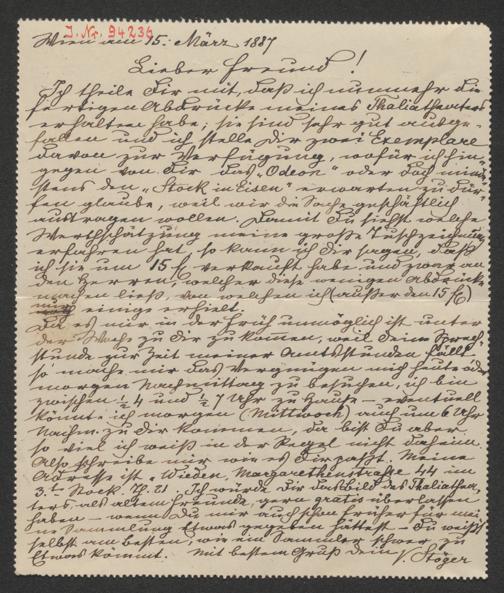 I.Nr. 94236
Wien am 15. März 1887
Lieber Freund!
Ich theile Dir mit, daß ich nunmehr die
fertigen Abdrücke meines Thaliatheaters
erhalten habe; sie sind sehr gut ausge-
fallen und ich stelle Dir zwei Exemplare
davon zur Verfügung, wofür ich hin-
gegen von Dir das „Odeon" oder doch minde-
stens den „Stock in Eisen" erwarten zu dür-
fen glaube, weil wir die Sache geschäftlich
austragen wollen. Damit Du siehst welche
Werthschätzung meine große Tuschzeichnung
erfahren hat, so kann ich dir sagen, daß
ich sie um 15 f verkauft habe und zwar an
den Herren, welcher diese wenigen Abdrücke
machen ließ, von welchen ich (außer den 15 f)
nur einige erhielt.
Da es mir in der Früh unmöglich ist unter
der Woche zu dir zu kommen, weil deine Sprech-
stunde zur Zeit meiner Amtsstunden fällt
so mache mir das Vergnügen mich heute oder
morgen Nachmittag zu besuchen, ich bin
zwischen ½4 und ½7 Uhr zu Hause – eventuell
könnte ich morgen (Mittwoch) auch um 6 Uhr
Nachm. zu dir kommen, da bist Du aber
so viel ich weiß in der Regel nicht daheim.
Also schreibe mir wie es Dir paßt. Meine
Adresse ist Wieden, Margarethenstraße 44 im
3. Stock, T. 21. Ich würde Dir das Bild des Thaliathea-
ters, als altem Freunde, gern gratis überlassen
haben – wenn du mir auch schon früher für mei-
ne Sammlung Etwas gegeben hättest – Du weißt
selbst am besten, wie ein Sammler schwer zu
Etwas kömmt. Mit bestem Gruß dein
V. Stöger